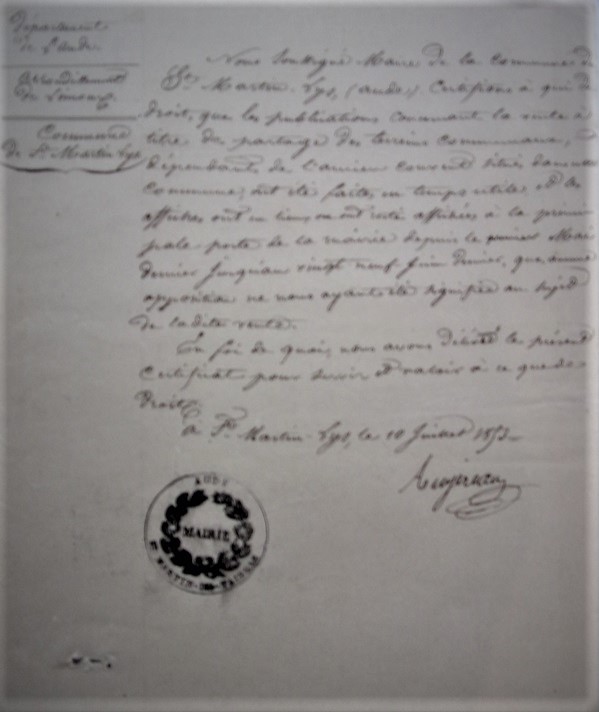 Département
de l'aude
arrondissement
de Limoux
Commune
de St Martin Lys
Nous Soussigné Maire de la Commune de
St Martin-Lys, (aude) Certifions à qui de
droit, que les publications concernant la vente à
titre de partage des terrains communaux,
dépendants de l'ancien couvent situés dans
commune, ont été faites en temps utile et les
affiches ont en lieu ont resté affichées à la princi
pale porte de la mairie depuis le premier Mai
dernier jusqu'au vingt neuf juin dernier, que aucune
opposition ne nous ayant été signifiée au sujet
de ladite vente.
En foi de quoi, nous avons délivré le présent
Certificat pour servir et valoir à ce que de
Droit.
à St Martin-Lys, le 10 Juillet
AUDE
MAIRIE
ST MARTIN